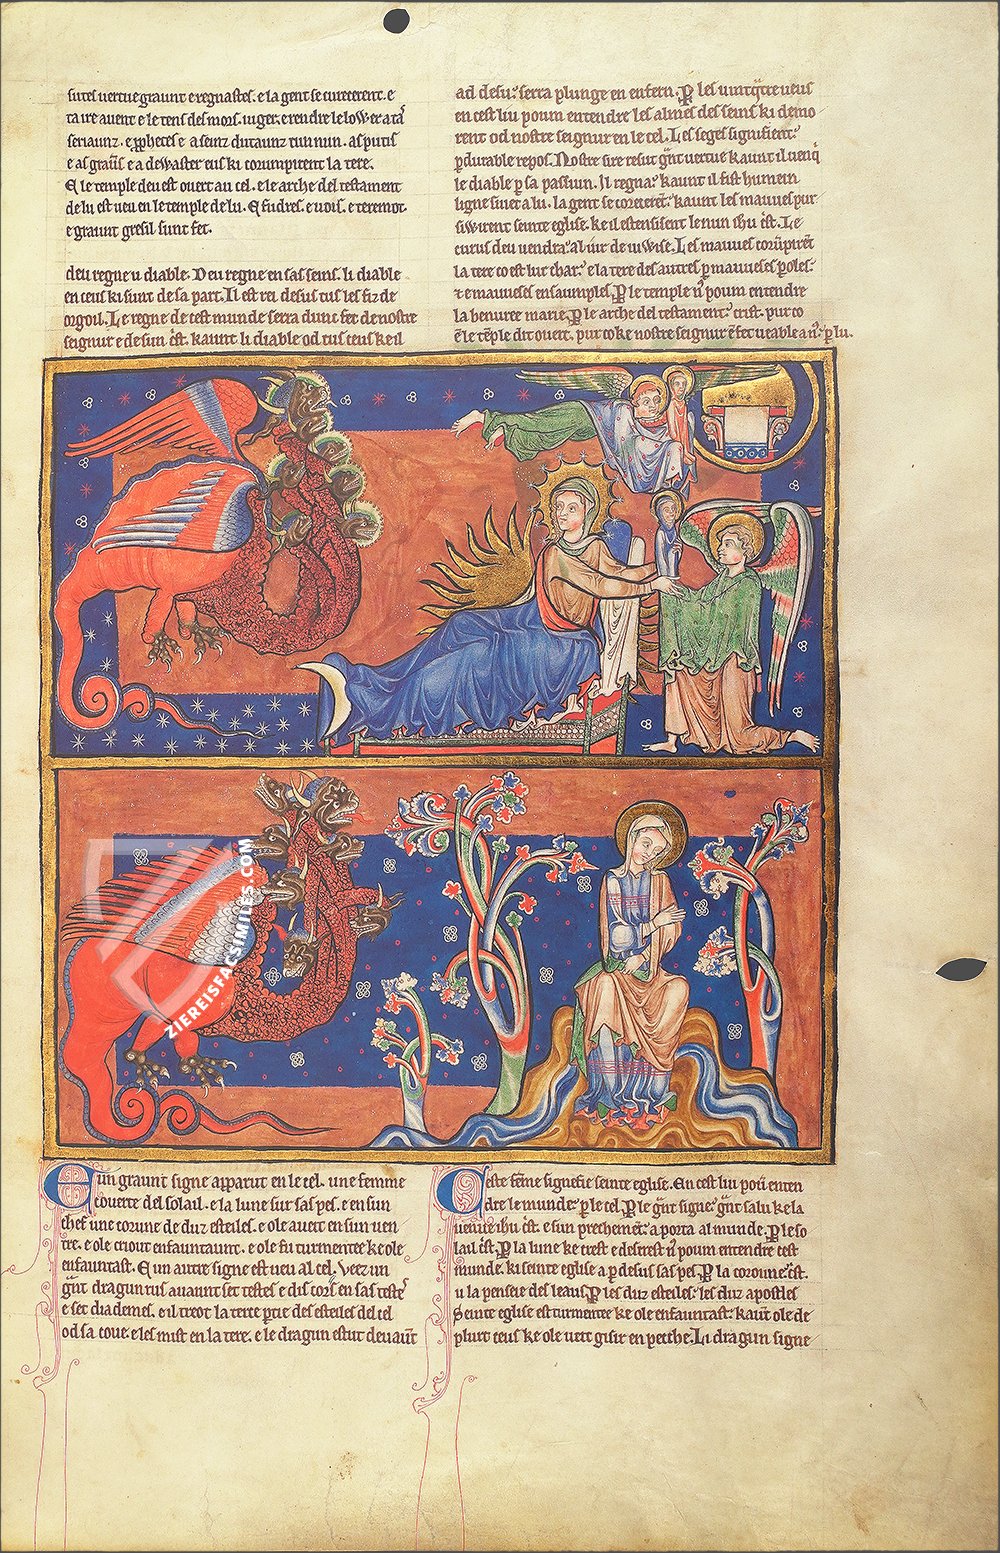 sutes uertue graunt e regnastes. e la gent se cureterent. e
ta ire auent e le tens des mors. iuger. e rendre le lower a tā
seriaunz. e pphetes e a seinz dutaunz tun nun. as putis
e as graūs e a dewaster eus ki corumpirent la tere.
E le temple deu est ouert au cel. e le arche del testament
de lu est ueu en le temple de lu. E fudres. e uois. e teremot.
e graunt gresil sunt fet.
deu regne u diable. Deu regne en sas seins. li diable
en ceus ki sunt de sa part. Il est rei desus tus les fiz de
orgoil. Le regne de cest munde serra dunc fet de nostre
seignur e de sun c̄st. kaunt li diable od tus ceus ke il
ad desu. serra plunge en enfern. P les uint q̄tre ueus
en cest liu poum entendre les almes des seins ki demo
rent od nostre seignur en le cel. Les seges signifient
pdurable repos. Nostre sire resut g̃nt uertue kaunt il uenq̄
le diable p sa passiun. Il regna. kaunt il fist humein
ligne siuet a lu. la gent se coreceret. kaunt les mauues pur
siwirent seinte eglise. ke il estensisent le nun ihu c̄st. Le
curus deu uendra. al iur de iuwise. Les mauues corūpirēt
la tere co est lur char. e la tere des autres p mauueses poles.
e mauueses ensaumples. P le temple n̄ poum entendre
la benuree marie. P le arche del testament. crist. pur co
ē le tēple dit ouert. pur co ke nostre seignur ē fet ueable a n̄. p lu.
ZIEREISFACSIMILES.COM
E un graunt signe apparut en le cel. une femme
couerte del solail. e la lune sur sas pes. e en sun
chef une corune de duz esteiles. e ole auert en sun uen
tre. e ole criout enfauntaunt. e ole fu turmentee ke ole
enfauntast. E un autre signe est ueu al cel. Veez un
g̃nt dragun rus auaunt set testes e dis cors en sas testes
e set diademes. e il treot la terce ptie des esteiles del cel
od sa coue. e les mist en la tere. e le dragun estut deuaūt
Ceste fēme signefie seinte eglise. En cest liu poū enten
dre le munde. p le cel. P le g̃nt signe. g̃nt salu ke la
uenue ihu c̄st. e sun prechemēt. a porta al munde. P le so
lail c̄st. P la lune ke crest e descrest n̄ poum entendre cest
munde. ki seinte eglise a p desus sas pes. P la corone. c̄st.
u la pensee des leaus. P les duz esteiles. les duz apostles
Seinte eglise est turmentee ke ole enfauntast. kaūt ole de
plurt ceus ke ole uert gisir en pecche. Li dragun signe